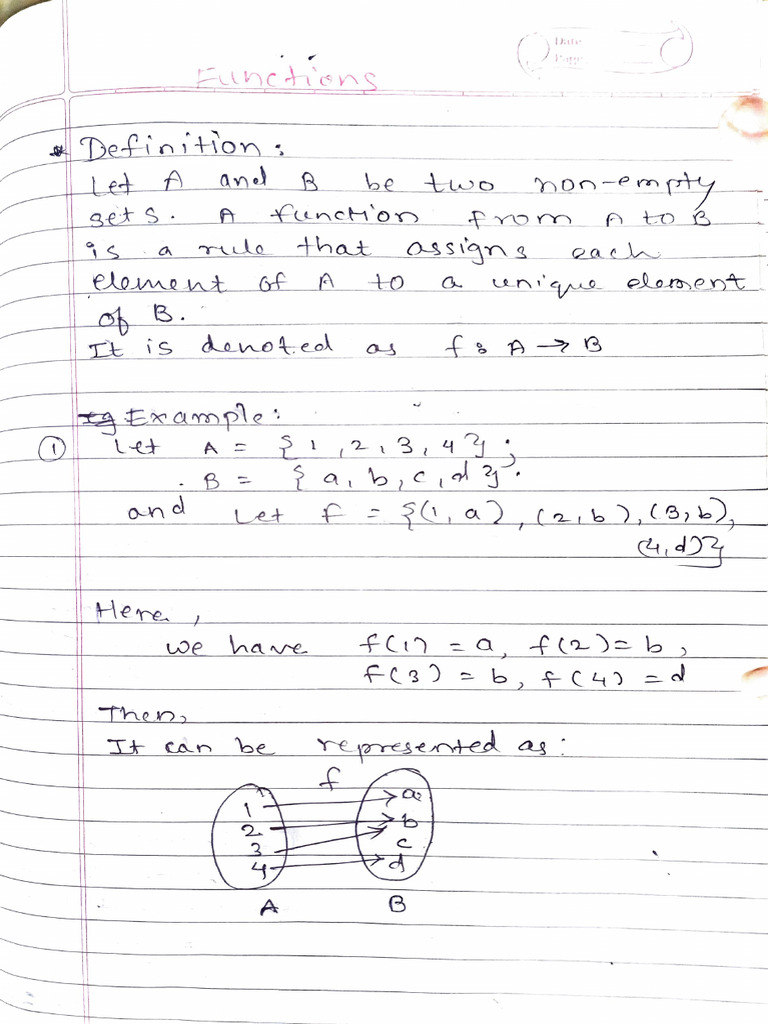 Date
Page
Functions
* Definition:
Let A and B be two non-empty
sets. A function from A to B
is a rule that assigns each
element of A to a unique element
of B.
It is denoted as f : A → B
Example:
① Let A = {1, 2, 3, 4};
B = {a, b, c, d}.
and Let f = {(1, a), (2, b), (3, b),
(4, d)}
Here,
we have f(1) = a, f(2) = b,
f(3) = b, f(4) = d
Then,
It can be represented as:
f
1 a
2 b
3 c
4 d
A B